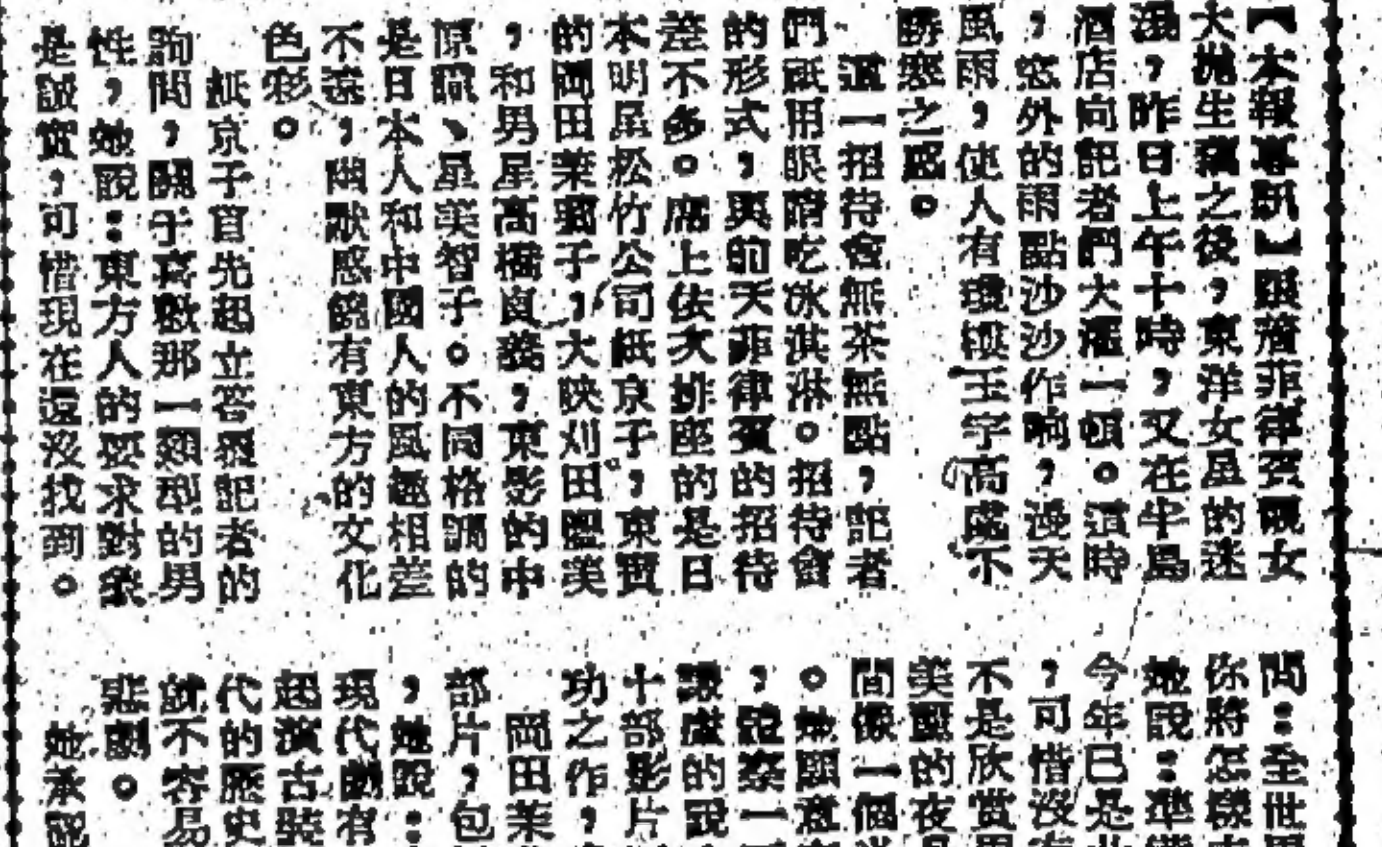 【本報專訊】跟着菲律賓靚女
大抛生藕之後，東洋女星的迷
湯，昨日上午十時，又在半島
酒店向記者們大灌一頓。這時
，窓外的雨點沙沙作响，漫天
風雨，使人有瓊樓玉宇高處不
勝寒之感。
這一招待會無茶無點，記者
們祇用眼睛吃冰淇淋。招待會
的形式，與前天菲律賓的招待
差不多。席上依次排座的是日
本明星松竹公司紙京子，東寶
的岡田茉莉子，大映刈田
，和男星高橋貞，東影的中
原、星美智子。不同格調的
是日本人和中國人的風趣相差
不遠，幽默感饒有東方的文化
色彩。
紙京子首先起立答覆記者的
詢問，關于喜歡那一類型的男
性，她說：東方人的要求對象
是誠實，可惜現在還沒找到。
問：全世界
你將怎樣
她說：準
今年已是
，可惜沒有
不是欣賞
美麗的夜
間像一個
。她願意
，說第一
謙虛的說
十部影片
功之作，
岡田茉
部片，包
，她說：
現代劇有
起演古裝
代的歷史
就不容易
悲劇。
她承認